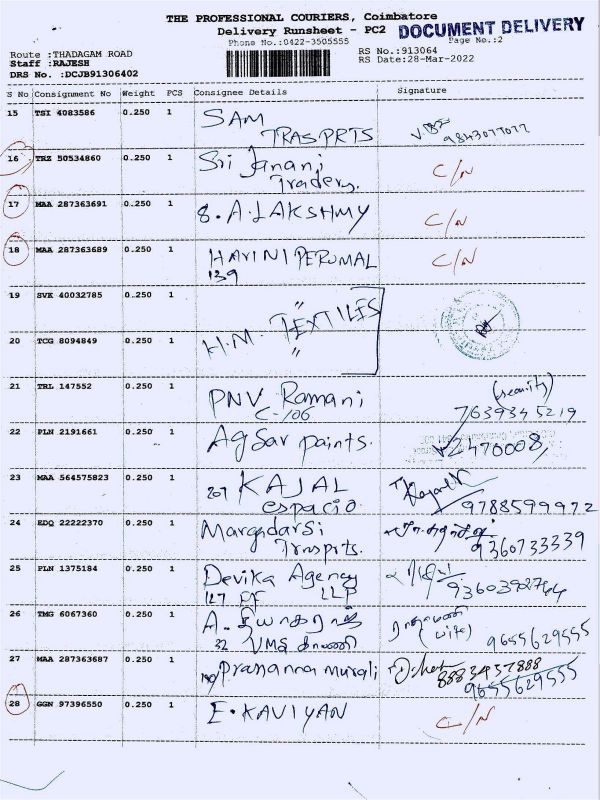 THE PROFESSIONAL COURIERS, Coimbatore
Delivery Runsheet - PC2
DOCUMENT DELIVERY
Phone No.:0422-3505555
Page No.:2
Route :THADAGAM ROAD
RS No.:913064
Staff :RAJESH
RS Date:28-Mar-2022
DRS No. :DCJB91306402
S No Consignment No Weight PCS Consignee Details Signature
15 TSI 4083586 0.250 1 SAM
TRASPRTS 9843077077
16 TRZ 50534860 0.250 1 Sri Janani C/N
Traders.
17 MAA 287363691 0.250 1 S.A.LAKSHMY C/N
18 MAA 287363689 0.250 1 HARINI PERUMAL C/N
139
19 SVK 40032785 0.250 1 "
H.M. TEXTILES
20 TCG 8094849 0.250 1 "
21 TRL 147552 0.250 1 PNV Ramani (security)
C-106 7639345219
22 PLN 2191661 0.250 1 Agsar paints. 2470008
23 MAA 564575823 0.250 1 207 KAJAL
espacio 9788599972
24 EDQ 22222370 0.250 1 Margdarsi
Trasprts. 9360733339
25 PLN 1375184 0.250 1 Devika Agency
127 Pf LLP 9360392764
26 TMG 6067360 0.250 1 A. தியாகராஜ்
32 VMS காலனி (wife) 9655629555
27 MAA 287363687 0.250 1 prasanna murali 8883457888
9655629555
28 GGN 97396550 0.250 1 E.KAVIYAN C/N